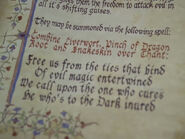 them the freedom to attack evil in
all it's shifting guises.
They may be summoned via the following spell:
Combine Liverwort, Pinch of Dragon
Root and Snakeskin over Chant:
Free us from the ties that bind
Of evil magic entertwined
We call upon the one who cures
he who's to the Dark inured